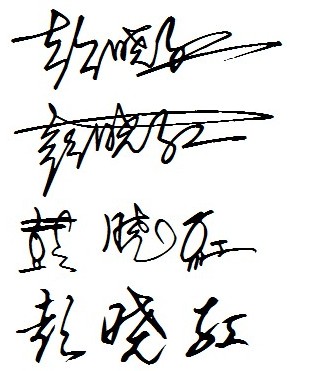 彭晓红
彭晓红
彭晓红
彭晓红